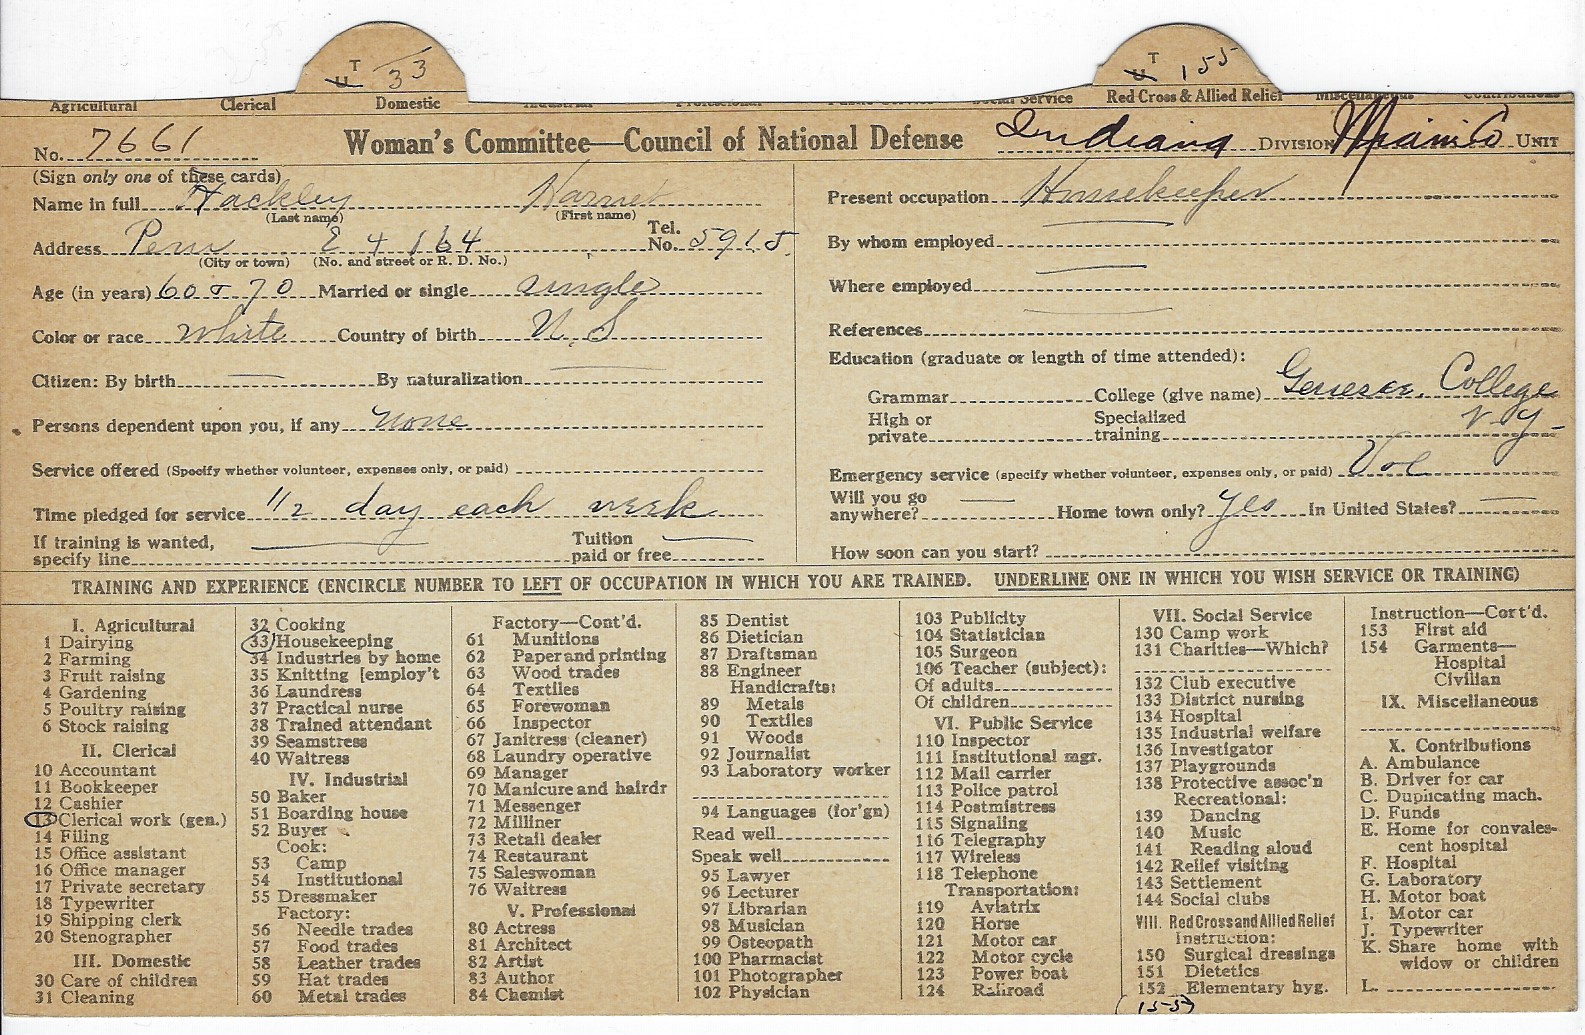 T 33
U
T 155
U
Agricultural Clerical Domestic Industrial Professional Public Service Social Service Red Cross & Allied Relief Miscellaneous Contributions
No. 7661 Woman's Committee—Council of National Defense Indiana DIVISION Miami Co UNIT
(Sign only one of these cards)
Name in full Hackley Harriet
(Last name) (First name)
Address Peru E 4 164 Tel. No. 5915
(City or town) (No. and street or R. D. No.)
Age (in years) 60 & 70 Married or single single
Color or race white Country of birth U. S
Citizen: By birth By naturalization
Persons dependent upon you, if any none
Service offered (Specify whether volunteer, expenses only, or paid)
Time pledged for service 1/2 day each week
If training is wanted, Tuition
specify line paid or free
Present occupation Housekeeper
By whom employed
Where employed
References
Education (graduate or length of time attended):
Grammar College (give name) Genesee. College
High or Specialized N-Y-
private training
Emergency service (specify whether volunteer, expenses only, or paid) Vol
Will you go
anywhere? Home town only? yes In United States?
How soon can you start?
TRAINING AND EXPERIENCE (ENCIRCLE NUMBER TO LEFT OF OCCUPATION IN WHICH YOU ARE TRAINED. UNDERLINE ONE IN WHICH YOU WISH SERVICE OR TRAINING)
I. Agricultural
1 Dairying
2 Farming
3 Fruit raising
4 Gardening
5 Poultry raising
6 Stock raising
II. Clerical
10 Accountant
11 Bookkeeper
12 Cashier
13 Clerical work (gen.)
14 Filing
15 Office assistant
16 Office manager
17 Private secretary
18 Typewriter
19 Shipping clerk
20 Stenographer
III. Domestic
30 Care of children
31 Cleaning
32 Cooking
33 Housekeeping
34 Industries by home
35 Knitting [employ't
36 Laundress
37 Practical nurse
38 Trained attendant
39 Seamstress
40 Waitress
IV. Industrial
50 Baker
51 Boarding house
52 Buyer
Cook:
53 Camp
54 Institutional
55 Dressmaker
Factory:
56 Needle trades
57 Food trades
58 Leather trades
59 Hat trades
60 Metal trades
Factory—Cont'd.
61 Munitions
62 Paper and printing
63 Wood trades
64 Textiles
65 Forewoman
66 Inspector
67 Janitress (cleaner)
68 Laundry operative
69 Manager
70 Manicure and hairdr
71 Messenger
72 Milliner
73 Retail dealer
74 Restaurant
75 Saleswoman
76 Waitress
V. Professional
80 Actress
81 Architect
82 Artist
83 Author
84 Chemist
85 Dentist
86 Dietician
87 Draftsman
88 Engineer
Handicrafts:
89 Metals
90 Textiles
91 Woods
92 Journalist
93 Laboratory worker
94 Languages (for'gn)
Read well
Speak well
95 Lawyer
96 Lecturer
97 Librarian
98 Musician
99 Osteopath
100 Pharmacist
101 Photographer
102 Physician
103 Publicity
104 Statistician
105 Surgeon
106 Teacher (subject):
Of adults
Of children
VI. Public Service
110 Inspector
111 Institutional mgr.
112 Mail carrier
113 Police patrol
114 Postmistress
115 Signaling
116 Telegraphy
117 Wireless
118 Telephone
Transportation:
119 Aviatrix
120 Horse
121 Motor car
122 Motor cycle
123 Power boat
124 Railroad
VII. Social Service
130 Camp work
131 Charities—Which?
132 Club executive
133 District nursing
134 Hospital
135 Industrial welfare
136 Investigator
137 Playgrounds
138 Protective assoc'n
Recreational:
139 Dancing
140 Music
141 Reading aloud
142 Relief visiting
143 Settlement
144 Social clubs
VIII. Red Cross and Allied Relief
Instruction:
150 Surgical dressings
151 Dietetics
152 Elementary hyg.
(155)
Instruction—Cort'd.
153 First aid
154 Garments—
Hospital
Civilian
IX. Miscellaneous
X. Contributions
A. Ambulance
B. Driver for car
C. Duplicating mach.
D. Funds
E. Home for convales-
cent hospital
F. Hospital
G. Laboratory
H. Motor boat
I. Motor car
J. Typewriter
K. Share home with
widow or children
L.